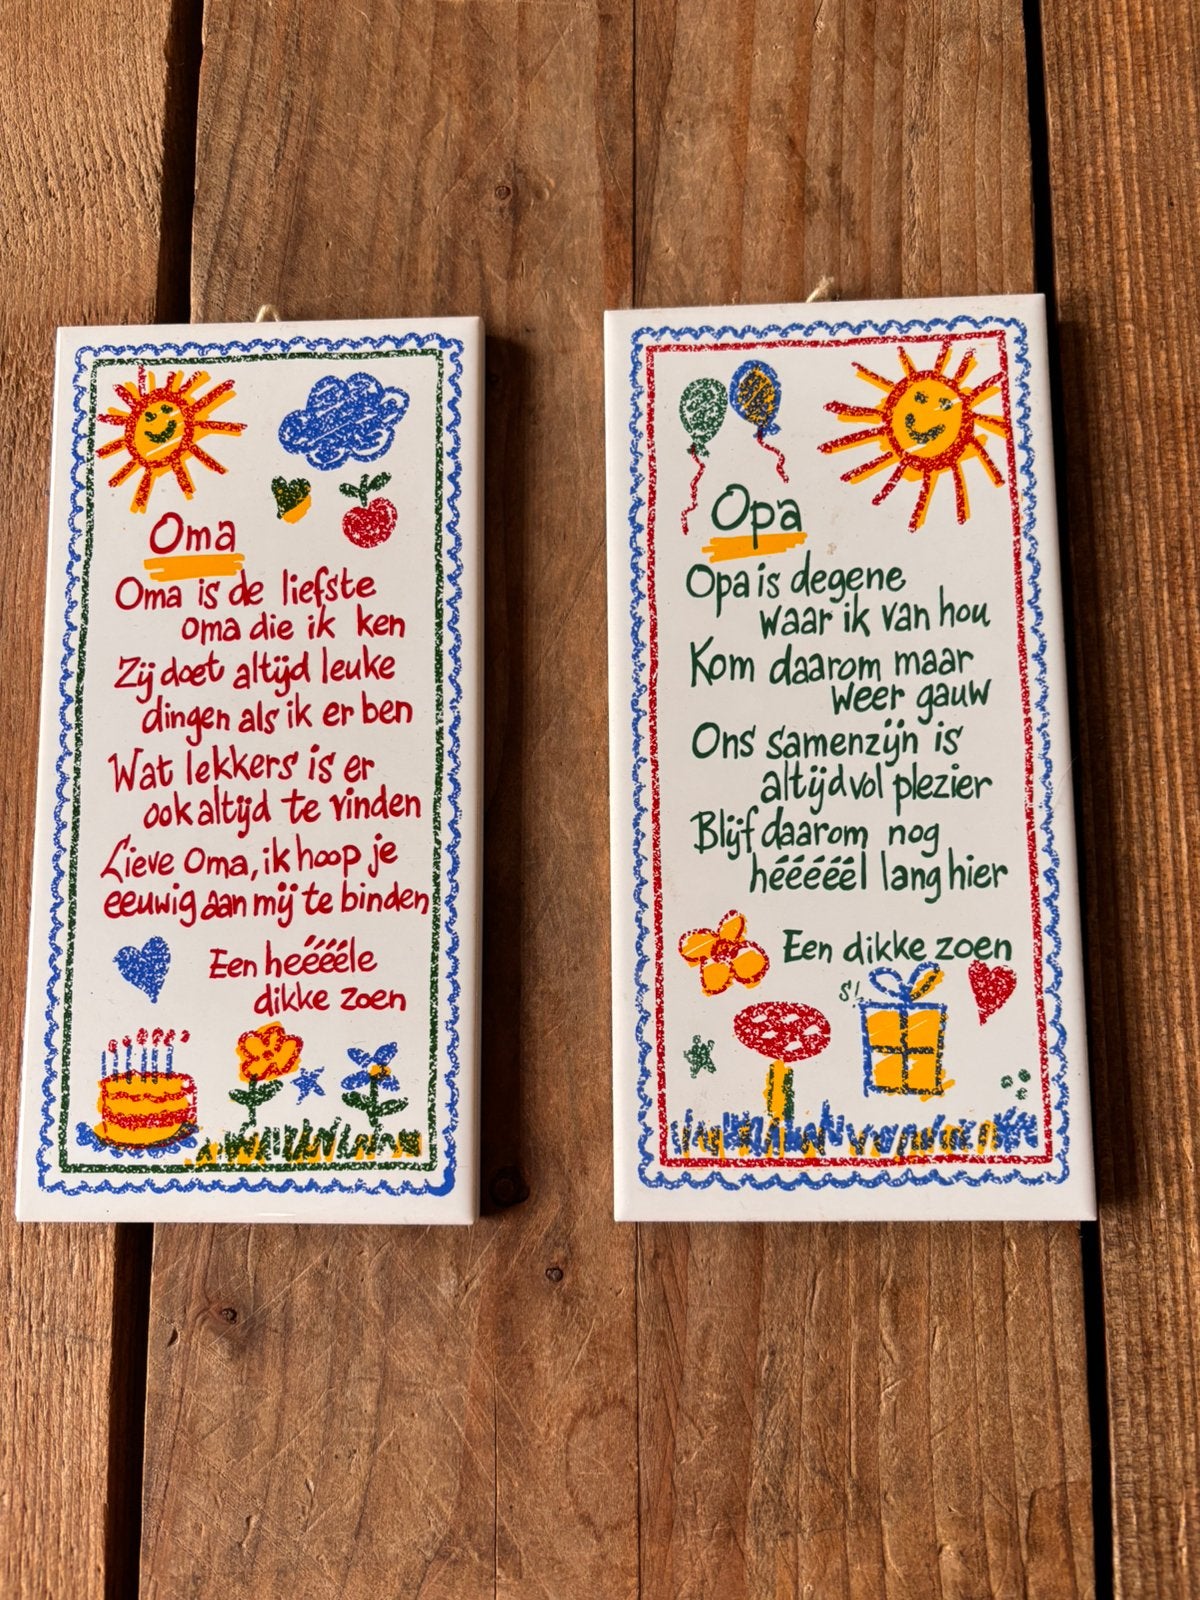 Oma
Oma is de liefste
oma die ik ken
Zij doet altijd leuke
dingen als ik er ben
Wat lekkers is er
ook altijd te vinden
Lieve Oma, ik hoop je
eeuwig aan mij te binden
Een heéééle
dikke zoen
Opa
Opa is degene
waar ik van hou
Kom daarom maar
weer gauw
Ons samenzijn is
altijd vol plezier
Blijf daarom nog
hééééél lang hier
Een dikke zoen
S!